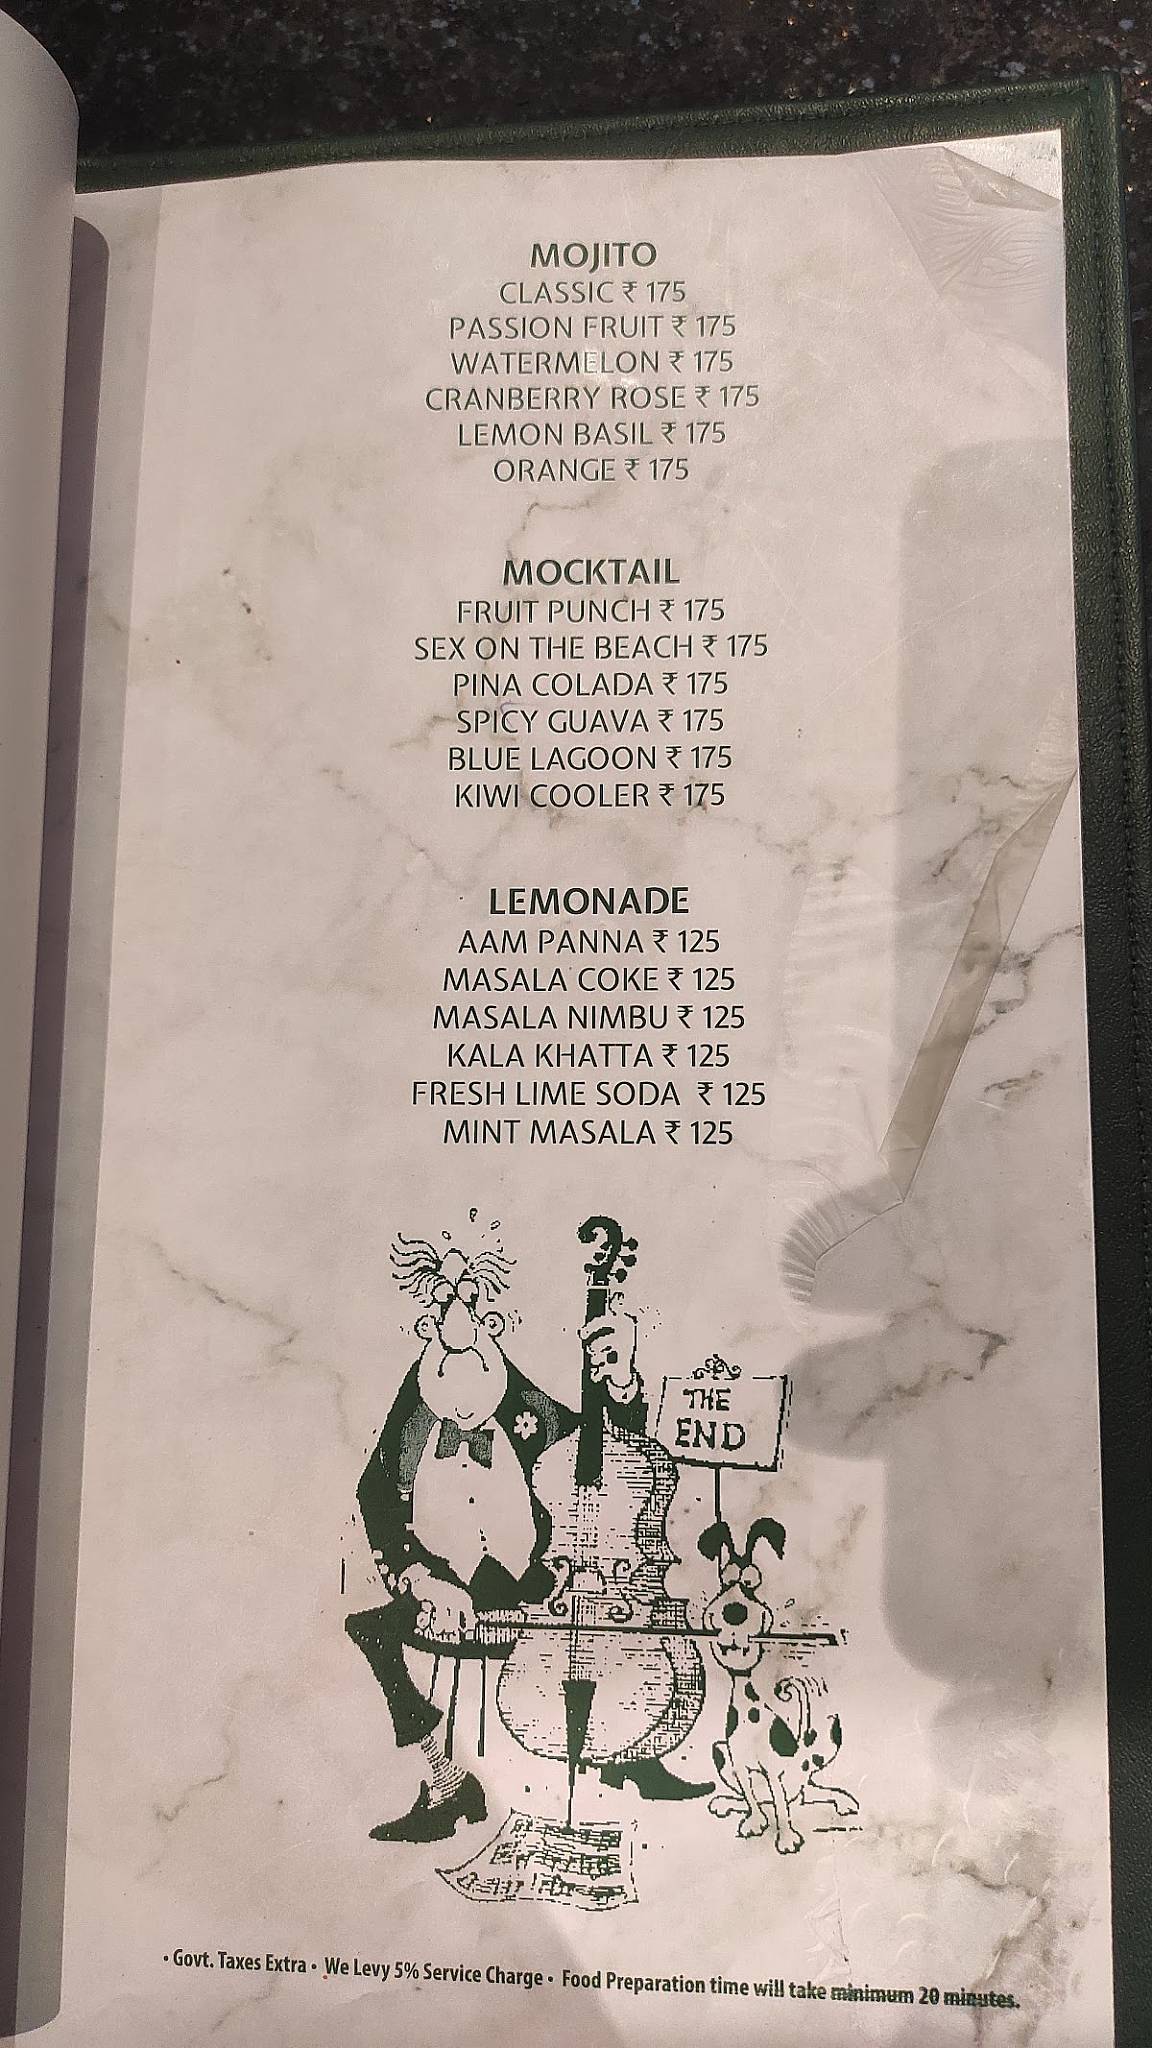 MOJITO
CLASSIC ₹ 175
PASSION FRUIT ₹ 175
WATERMELON ₹ 175
CRANBERRY ROSE ₹ 175
LEMON BASIL ₹ 175
ORANGE ₹ 175
MOCKTAIL
FRUIT PUNCH ₹ 175
SEX ON THE BEACH ₹ 175
PINA COLADA ₹ 175
SPICY GUAVA ₹ 175
BLUE LAGOON ₹ 175
KIWI COOLER ₹ 175
LEMONADE
AAM PANNA ₹ 125
MASALA COKE ₹ 125
MASALA NIMBU ₹ 125
KALA KHATTA ₹ 125
FRESH LIME SODA ₹ 125
MINT MASALA ₹ 125
THE
END
• Govt. Taxes Extra • We Levy 5% Service Charge • Food Preparation time will take minimum 20 minutes.